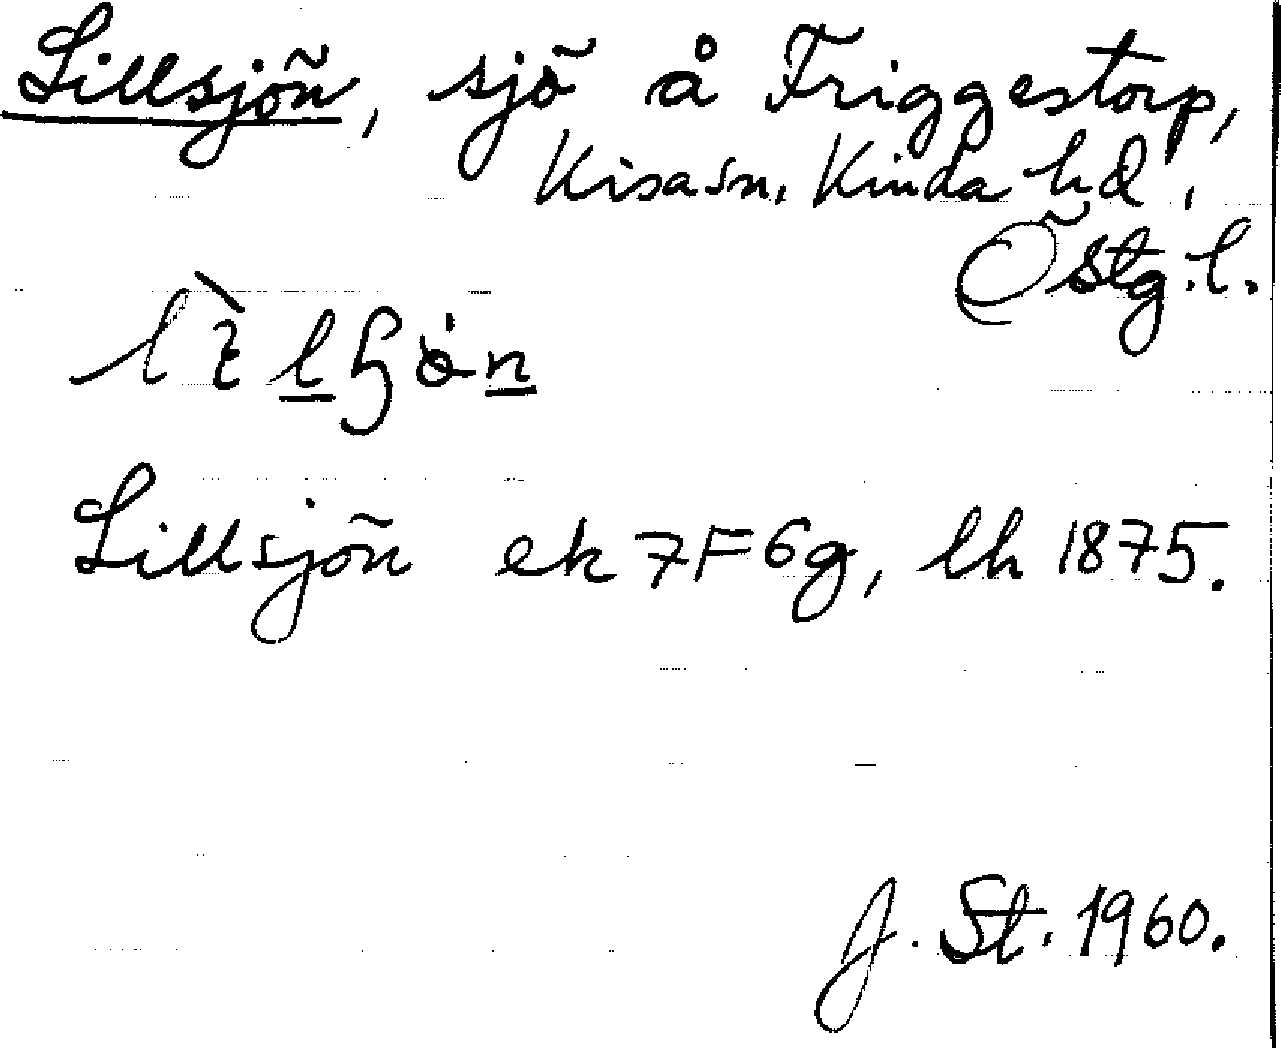 Lillsjön, sjö å Friggestorp,
Kisa sn, Kinda hd,
Östg. l.
Lillsjön ek 7F6g, lh 1875.
J. St. 1960.